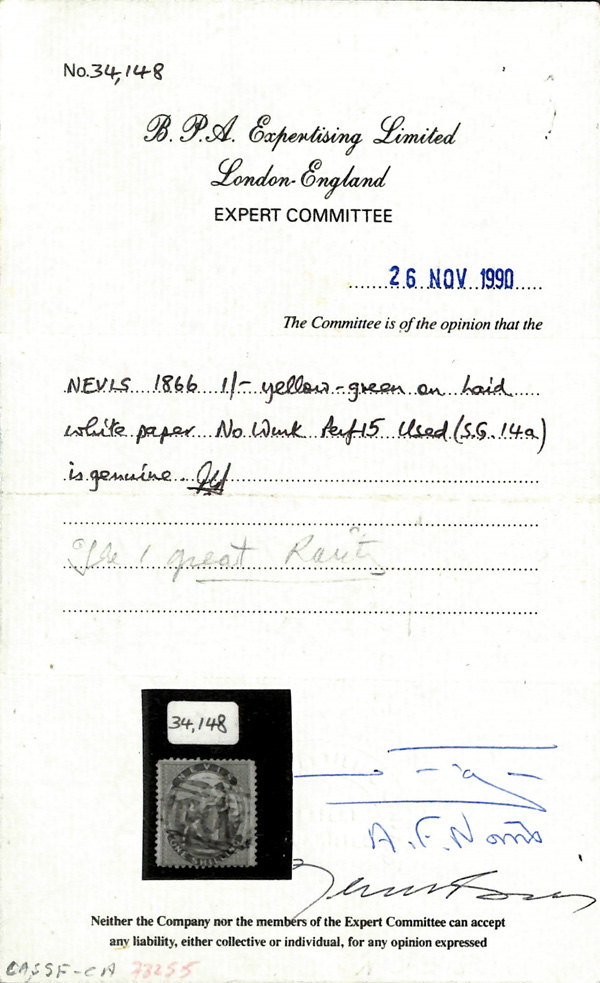 No. 34,148
B. P. A. Expertising Limited
London-England
EXPERT COMMITTEE
26 NOV 1990
The Committee is of the opinion that the
NEVIS 1866 1/- yellow-green on Laid
white paper No Wmk Perf 15 Used (S.G. 14a)
is genuine.
great Rarity
34,148
NEVIS
A. F. Norris
Neither the Company nor the members of the Expert Committee can accept
any liability, either collective or individual, for any opinion expressed
CASSF-CA 73255